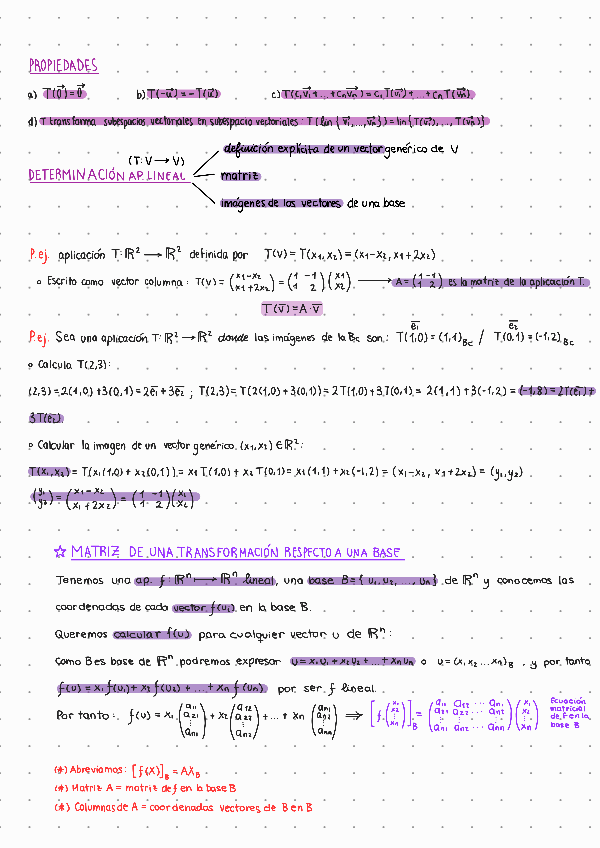 PROPIEDADES
a) T(0⃗) = 0⃗   b) T(-u⃗) = -T(u⃗)   c) T(c₁v⃗₁ + ... + cₙv⃗ₙ) = c₁T(v⃗₁) + ... + cₙT(v⃗ₙ)
d) T transforma subespacios vectoriales en subespacio vectoriales: T(lin{v⃗₁, ..., v⃗ₙ}) = lin{T(v⃗₁), ..., T(v⃗ₙ)}
definición explícita de un vector genérico de V
(T: V → V)
DETERMINACIÓN AP. LINEAL   matriz
imágenes de los vectores de una base
P.ej. aplicación T: ℝ² → ℝ² definida por T(v) = T(x₁, x₂) = (x₁-x₂, x₁+2x₂)
o Escrito como vector columna: T(v) = (x₁-x₂ / x₁+2x₂) = (1 -1 / 1 2)(x₁ / x₂) → A = (1 -1 / 1 2) es la matriz de la aplicación T.
T(v̅) = A · v̅
e̅₁   e̅₂
P.ej. Sea una aplicación T: ℝ² → ℝ² donde las imágenes de la Bc son: T(1,0) = (1,1)Bc / T(0,1) = (-1,2)Bc
o Calcula T(2,3):
(2,3) = 2(1,0) + 3(0,1) = 2e̅₁ + 3e̅₂ ; T(2,3) = T(2(1,0) + 3(0,1)) = 2T(1,0) + 3T(0,1) = 2(1,1) + 3(-1,2) = (-1,8) = 2T(e̅₁) +
3T(e̅₂)
o Calcular la imagen de un vector genérico (x₁, x₂) ∈ ℝ²:
T(x₁, x₂) = T(x₁(1,0) + x₂(0,1)) = x₁T(1,0) + x₂T(0,1) = x₁(1,1) + x₂(-1,2) = (x₁-x₂, x₁+2x₂) = (y₁, y₂)
(y₁ / y₂) = (x₁-x₂ / x₁+2x₂) = (1 -1 / 1 2)(x₁ / x₂)
☆ MATRIZ DE UNA TRANSFORMACIÓN RESPECTO A UNA BASE
Tenemos una ap. f: ℝⁿ → ℝⁿ lineal, una base B = {u₁, u₂, ..., uₙ} de ℝⁿ y conocemos las
coordenadas de cada vector f(uᵢ) en la base B.
Queremos calcular f(u) para cualquier vector u de ℝⁿ:
Como B es base de ℝⁿ podremos expresar u = x₁u₁ + x₂u₂ + ... + xₙuₙ o u = (x₁, x₂ ... xₙ)B, y por tanto
f(u) = x₁f(u₁) + x₂f(u₂) + ... + xₙf(uₙ) por ser f lineal.
Por tanto: f(u) = x₁(a₁₁ / a₂₁ / ⋮ / aₙ₁) + x₂(a₁₂ / a₂₂ / ⋮ / aₙ₂) + ... + xₙ(aₙ₁ / aₙ₂ / ⋮ / aₙₙ) ⟹ [f(x₁ / x₂ / ⋮ / xₙ)]B = (a₁₁ a₁₂ ... aₙ₁ / a₂₁ a₂₂ ... aₙ₂ / aₙ₁ aₙ₂ ... aₙₙ)(x₁ / x₂ / ⋮ / xₙ)
Ecuación
matricial
de F en la
base B
(*) Abreviamos: [f(X)]B = AXB
(*) Matriz A = matriz de f en la base B
(*) Columnas de A = coordenadas vectores de B en B